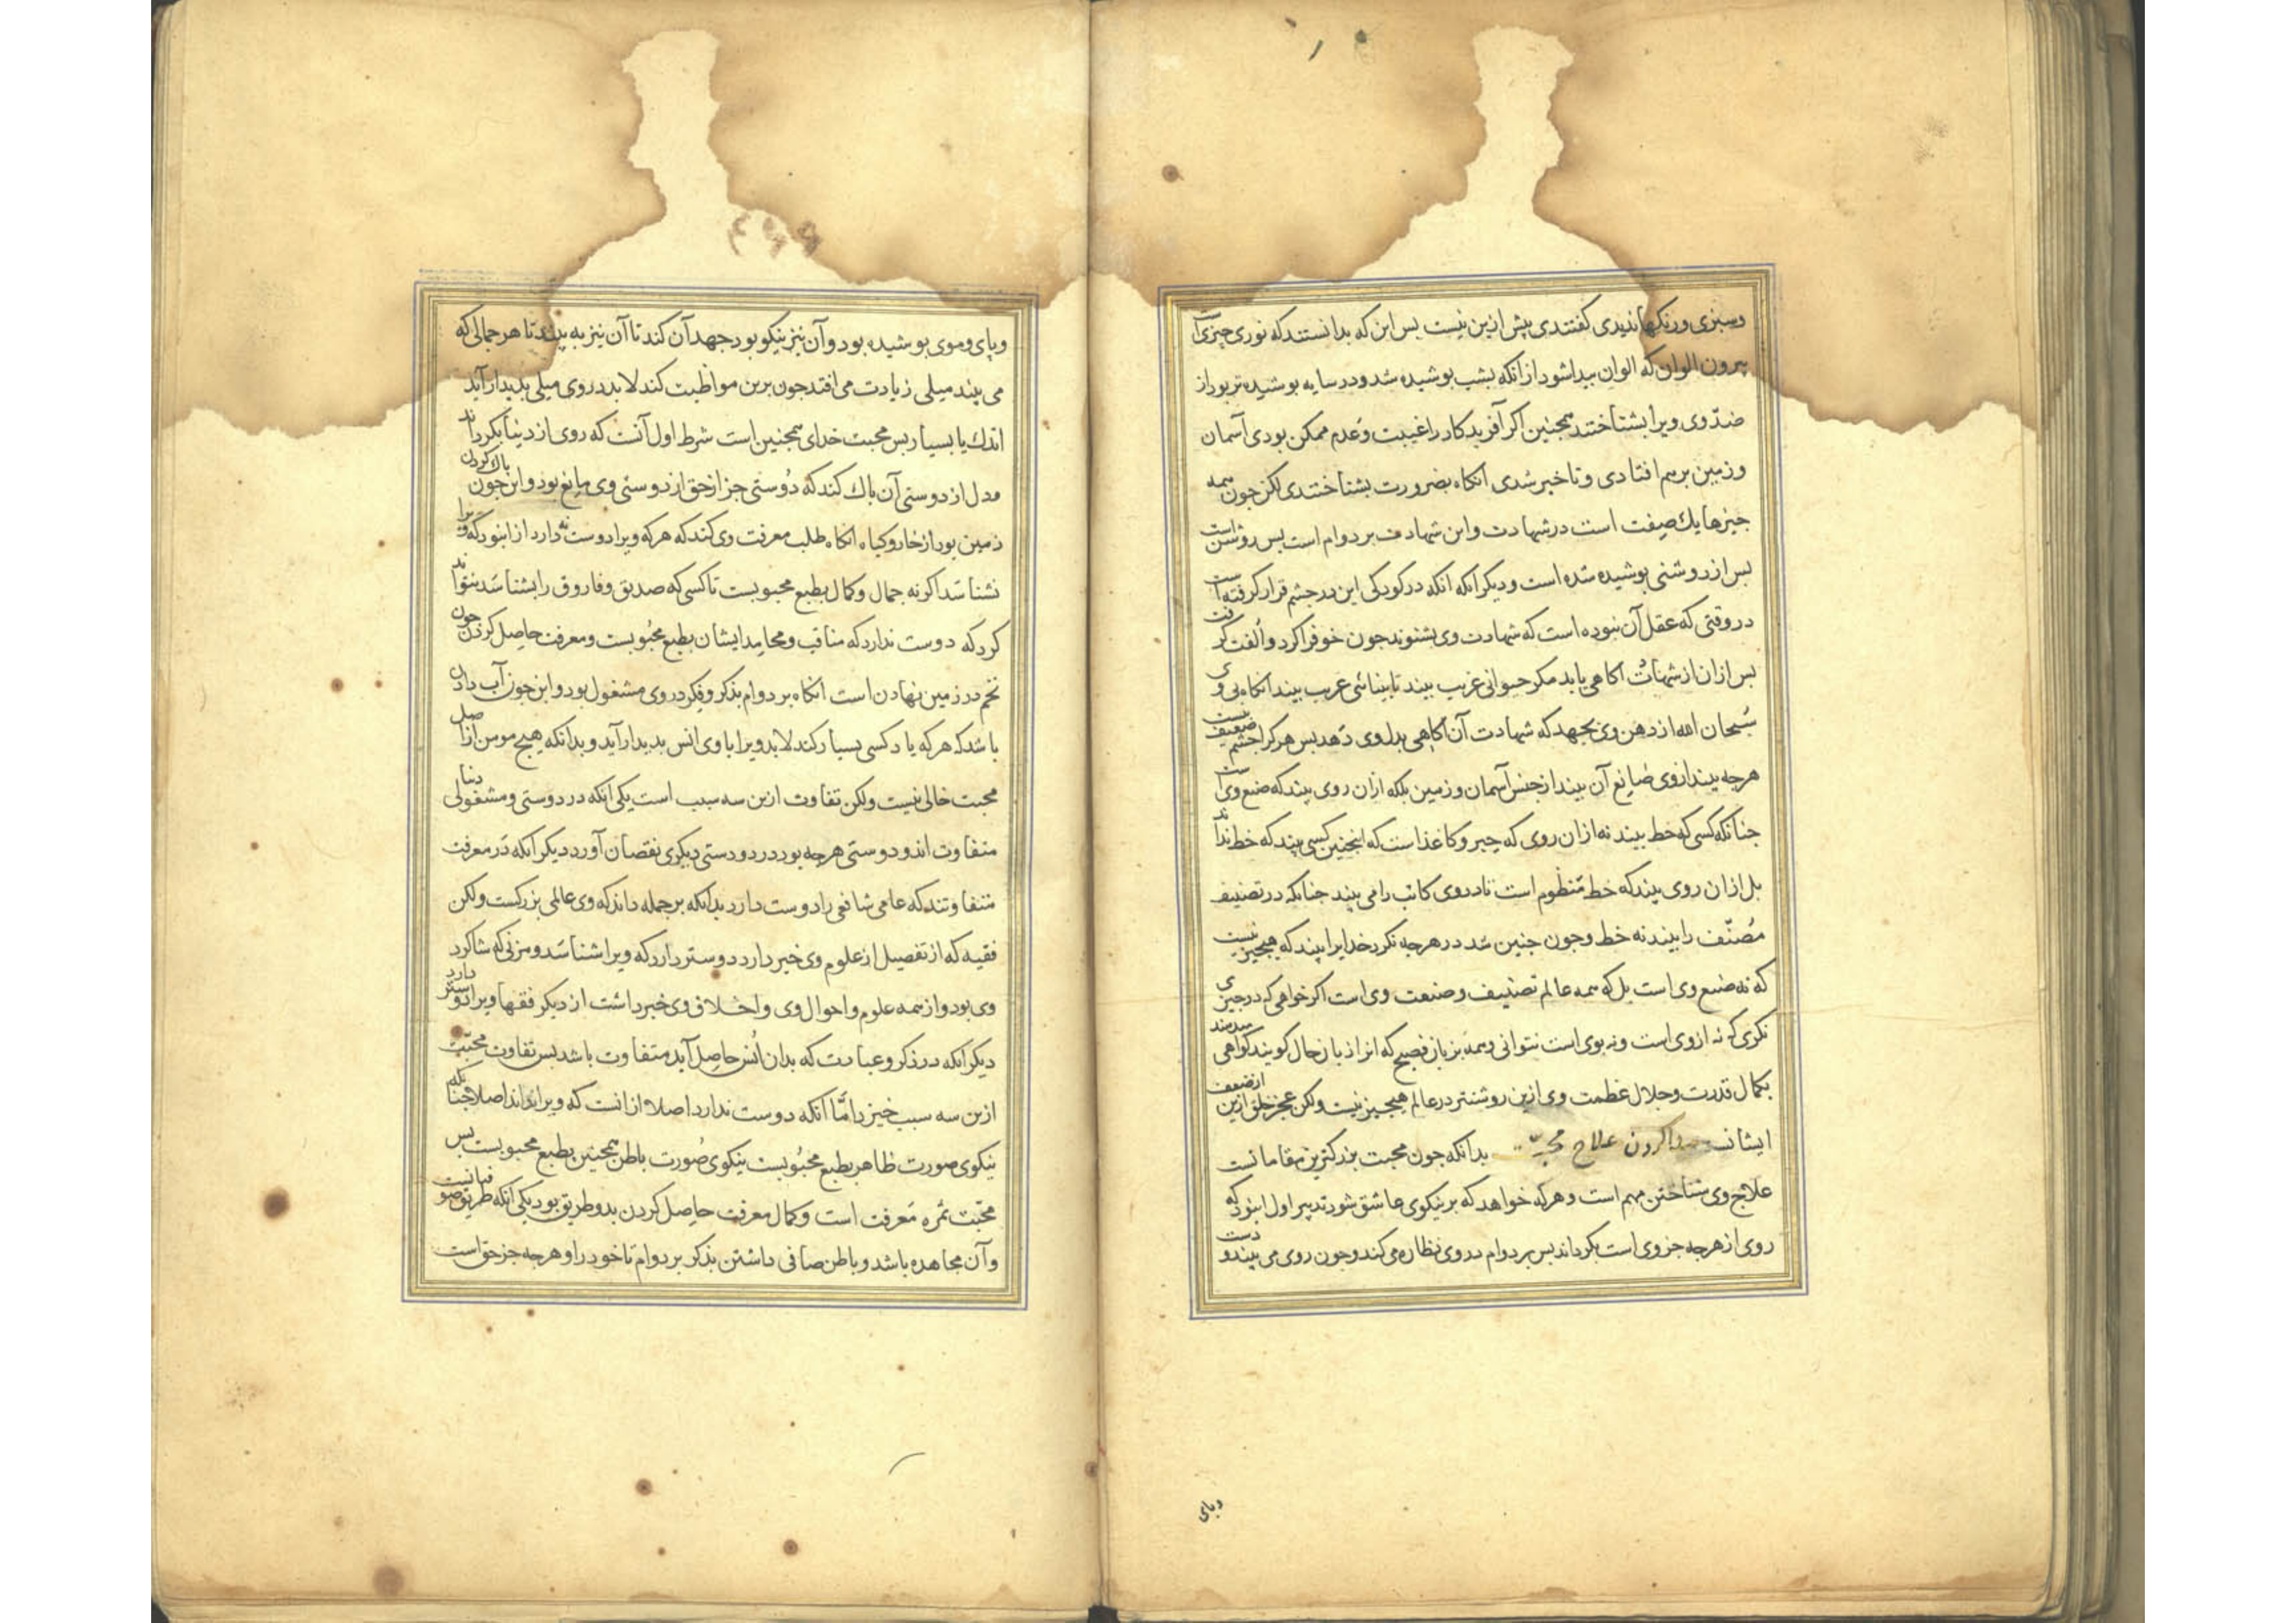 وسبزی ورنکها ندیدی کفتندی بیش ازین نیست بس این که بدانستند که نوری جیزی
بیرون الوان که الوان بیدا شود از انکه بشب بوشیده شد ودر سایه بوشیده تر بود از
ضدّ وی ویرا بشناختند همجنین اکر آفریدکار را غیبت وعدم ممکن بودی آسمان
وزمین برهم افتادی وناخیر شدی انکاه بضرورت بشناختندی لکن جون همه
جیزها یك صفت است در شهادت واین شهادت بر دوام است بس روشن است
بس از روشنی بوشیده شده است ودیکر انکه در کودکی این در جشم قرار کرفته است
در وقتی که عقل آن نبوده است که شهادت وی بشنوند جون خو فرا کرد والفت کرفت
بس ازان از شهادت اکاهی نیابد مکر حیوانی غریب بیند تا بیناتی غریب بیند انکاه بی وی
سبحان الله از دهن وی بجهد که شهادت آن اکاهی بدل وی دهد بس هرکرا جشم ضعیف نیست
هرجه بیند ازوی صانع آن بیند از جنس آسمان وزمین بلکه ازان روی بیند که صنع وی است
جنانکه کسی که خط بیند نه ازان روی که حبر وکاغذ است که اینجنین کسی بیند که خط نداند
بل ازان روی بیند که خط منظوم است تا در وی کاتب را می بیند جنانکه در تصنیف
مصنّف را بیند نه خط وجون جنین شد در هرجه نکرد خدایرا بیند که هیجیز نیست
که نه صنع وی است بل که همه عالم تصنیف وصنعت وی است اکر خواهی که در جیزی
نکری که نه ازوی است ونه بوی است نتوانی وهمه بزبان فصیح که انرا زبان حال کویند کواهی میدهند
بکمال قدرت وجلال عظمت وی ازین روشنتر در عالم هیجیز نیست ولکن عجز خلق ازین از ضعف
ایشانست بیدا کردن علاج محبت بدانکه جون محبت بزرکترین مقاماتست
علاج وی شناختن مهم است وهرکه خواهد که بر نیکوی عاشق شود تدبیر اول این بود که
روی از هرجه جز وی است بکرداند بس بر دوام در وی نظاره می کند وجون روی می بیند ودست
وبای
وبای وموی بوشیده بود وآن نیز نیکو بود جهد آن کند تا آن نیز به بیند تا هر جمالی که
می بیند میلی زیادت می افتد جون برین مواظبت کند لابد در وی میلی بدیدار آید
اندك یا بسیار بس محبت خدای همجنین است شرط اول آنست که روی از دنیا بکرداند
ودل از دوستی آن باك کند که دوستی جز از حق از دوستی وی مانع بود واین جون باك کردن
زمین بود از خار وکیاه انکاه طلب معرفت وی کند که هرکه ویرا دوست نه دارد از این بود که ویرا
نشناسد اکرنه جمال وکمال بطبع محبوبست تا کسی که صدیق وفاروق را بشناسد نتواند
کرد که دوست ندارد که مناقب ومحامد ایشان بطبع محبوبست ومعرفت حاصل کردن جون
تخم در زمین نهادن است انکاه بر دوام بذکر وفکر در وی مشغول بود واین جون آب دادن
باشد که هرکه یاد کسی بسیار کند لابد ویرا با وی انس بدیدار آید وبدانکه هیج مومن از اصل
محبت خالی نیست ولکن تفاوت ازین سه سبب است یکی انکه در دوستی ومشغولی دنیا
متفاوت اند ودوستی هرجه بود در دوستی دیکری نقصان آورد دیکر انکه در معرفت
متفاوتند که عامی شافعی را دوست دارد بدانکه بر جمله داند که وی عالمی بزرکست ولکن
فقیه که از تفصیل از علوم وی خبر دارد دوستر دارد که ویرا شناسد ومزنی که شاکرد
وی بود واز همه علوم واحوال وی واخلاق وی خبر داشت از دیکر فقها ویرا دوستر دارد
دیکر انکه در ذکر وعبادت که بدان انس حاصل آید متفاوت باشد بس تفاوت محبت
ازین سه سبب خیزد امّا آنکه دوست ندارد اصلا از انست که ویرا نداند اصلا جنانکه
نیکوی صورت ظاهر بطبع محبوبست نیکوی صورت باطن همجنین بطبع محبوبست بس
محبت ثمره معرفت است وکمال معرفت حاصل کردن بدو طریق بود یکی انکه طریق صوفیانست
وآن مجاهده باشد وباطن صافی داشتن بذکر بر دوام تا خود را وهرجه جز حق است